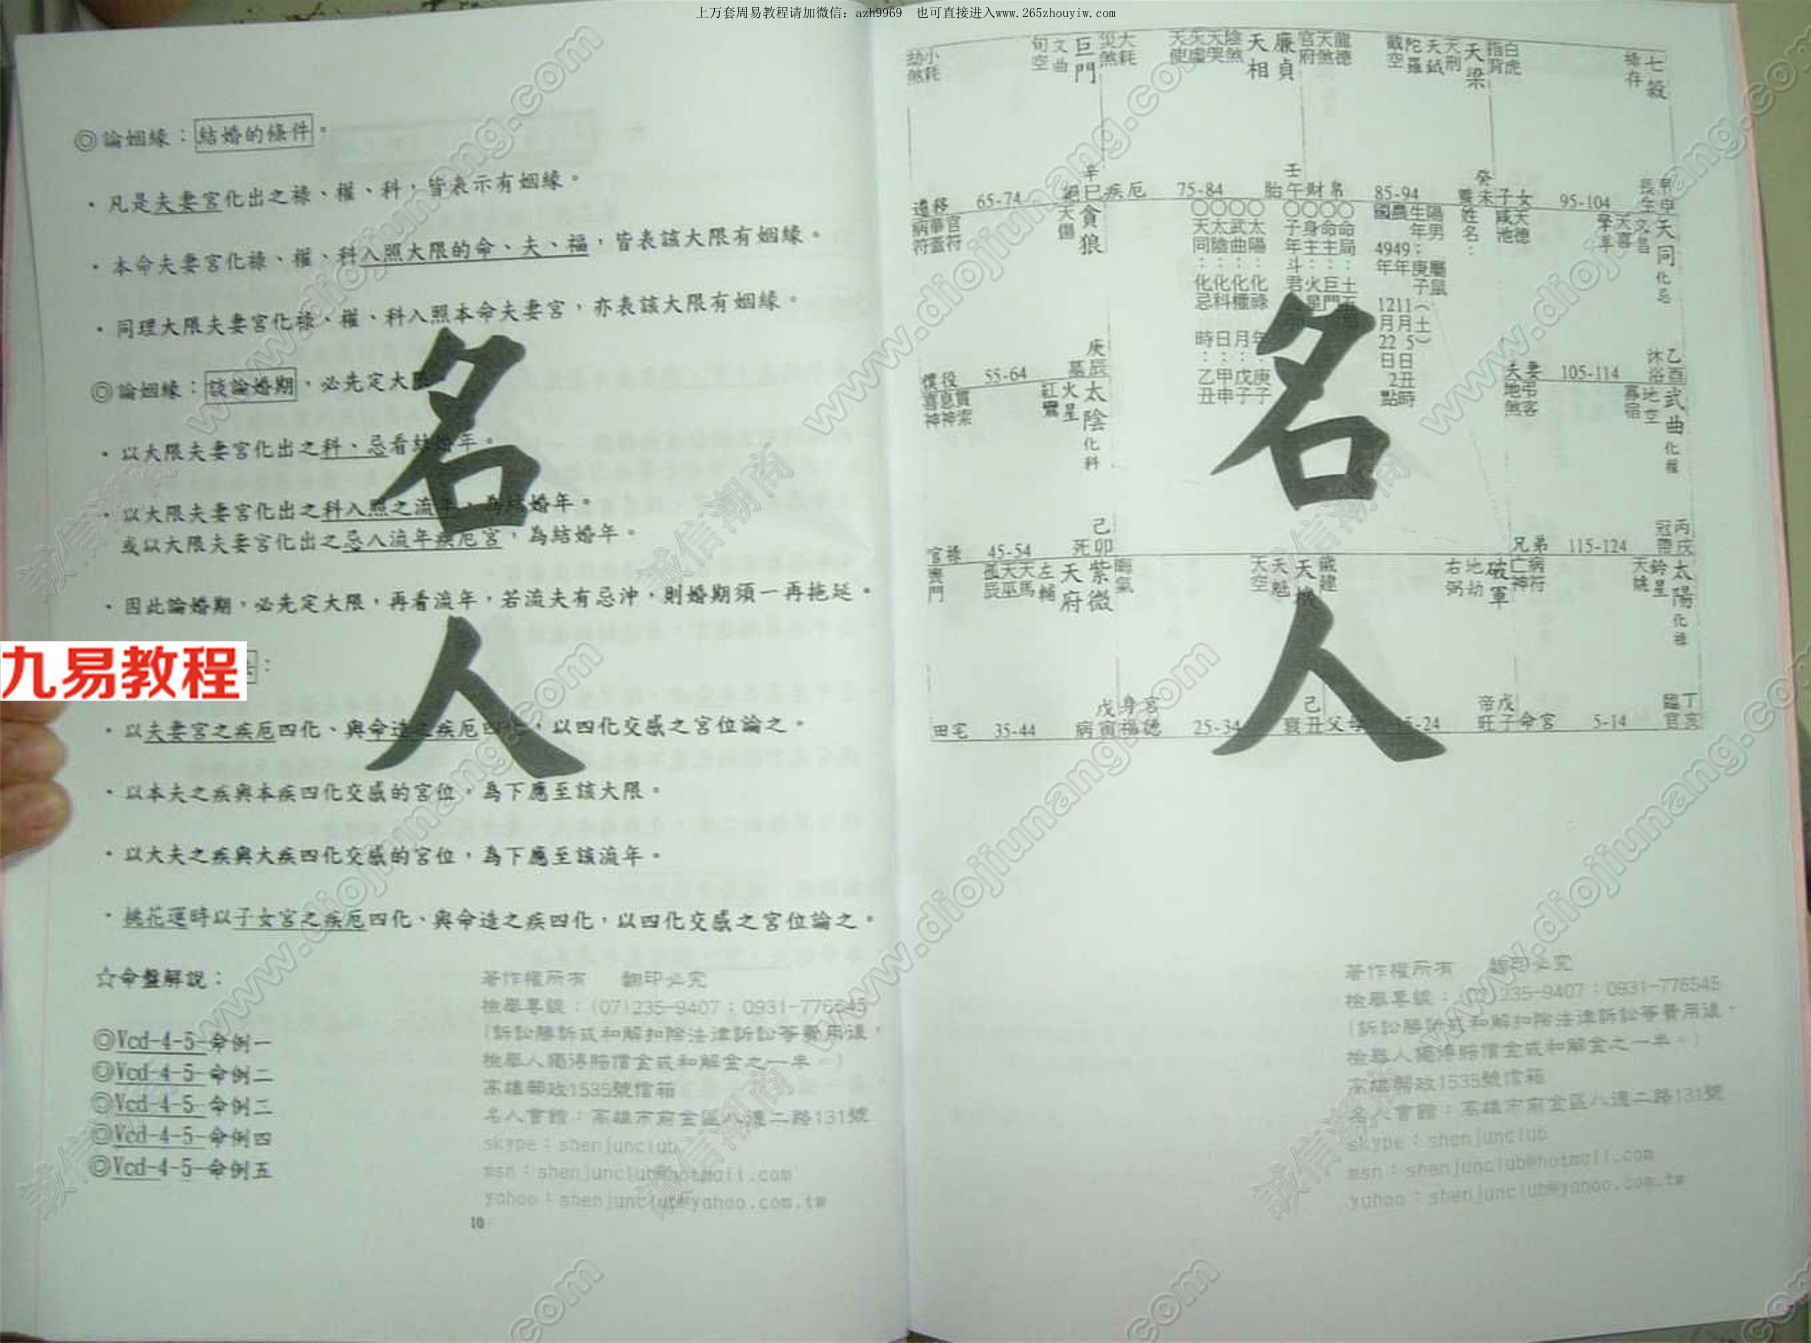 上万套周易教程请加微信：azh9969　也可直接进入www.265zhouyiw.com
◎論姻緣：結婚的條件。
・凡是夫妻宮化出之祿、權、科，皆表示有姻緣。
・本命夫妻宮化祿、權、科入照大限的命、夫、福，皆表該大限有姻緣。
・同理大限夫妻宮化祿、權、科入照本命夫妻宮，亦表該大限有姻緣。
◎論姻緣：談論婚期，必先定大限
・以大限夫妻宮化出之科、忌看結婚年。
・以大限夫妻宮化出之科入照之流年，為結婚年。
或以大限夫妻宮化出之忌入流年疾厄宮，為結婚年。
・因此論婚期，必先定大限，再看流年，若流夫有忌沖，則婚期須一再拖延。
九易教程
・以夫妻宮之疾厄四化、與命造之疾厄四化，以四化交感之宮位論之。
・以本夫之疾與本疾四化交感的宮位，為下應至該大限。
・以大夫之疾與大疾四化交感的宮位，為下應至該流年。
・桃花運時以子女宮之疾厄四化、與命造之疾四化，以四化交感之宮位論之。
☆命盤解說：
◎Vcd-4-5-命例一
◎Vcd-4-5-命例二
◎Vcd-4-5-命例三
◎Vcd-4-5-命例四
◎Vcd-4-5-命例五
著作權所有　翻印必究
檢舉專線：(07)235-9407；0931-776545
(訴訟勝訴或和解扣除法律訴訟等費用後，
檢舉人獨得賠償金或和解金之一半。)
高雄郵政1535號信箱
名人會館：高雄市前金區八德二路131號
skype：shenjunclub
msn：shenjunclub@hotmail.com
yahoo：shenjunclub@yahoo.com.tw
10
名人
小耗
劫煞
巨門
文曲
旬空
大耗
災煞
廉貞
天相
陰煞
天哭
天虛
天使
龍德
天煞
官府
天梁
天刑
天鉞
陀羅
截空
白虎
指背
七殺
祿存
遷移 65-74 絕 辛巳
疾厄 75-84 胎 壬午
財帛 85-94 養 癸未
子女 95-104 長生 甲申
官符
華蓋
病符
貪狼
天傷
天德
咸池
天同化忌
文昌
天喜
擎羊
太陽：化祿
武曲：化權
太陰：化科
天同：化忌
命局：土五
命主：巨門
身主：火星
子年斗君：
陽男
屬鼠
姓名：
年：庚子
月：戊子
日：甲申
時：乙丑
僕役 55-64 墓 庚辰
夫妻 105-114 沐浴 乙酉
貫索
息神
喜神
太陰化科
火星
紅鸞
弔客
地煞
武曲化權
地空
寡宿
官祿 45-54 死 己卯
兄弟 115-124 冠帶 丙戌
喪門
紫微
天府
左輔
天馬
天巫
孤辰
晦氣
天機
天魁
天空
歲建
破軍
地劫
右弼
病符
亡神
太陽化祿
鈴星
天姚
田宅 35-44 病 戊寅
身宮
福德 25-34 衰 己丑
父母 15-24 帝旺 戊子
命宮 5-14 臨官 丁亥
名人
著作權所有　翻印必究
檢舉專線：(07)235-9407；0931-776545
(訴訟勝訴或和解扣除法律訴訟等費用後，
檢舉人獨得賠償金或和解金之一半。)
高雄郵政1535號信箱
名人會館：高雄市前金區八德二路131號
skype：shenjunclub
msn：shenjunclub@hotmail.com
yahoo：shenjunclub@yahoo.com.tw
www.diojiunang.com
誠信潮商